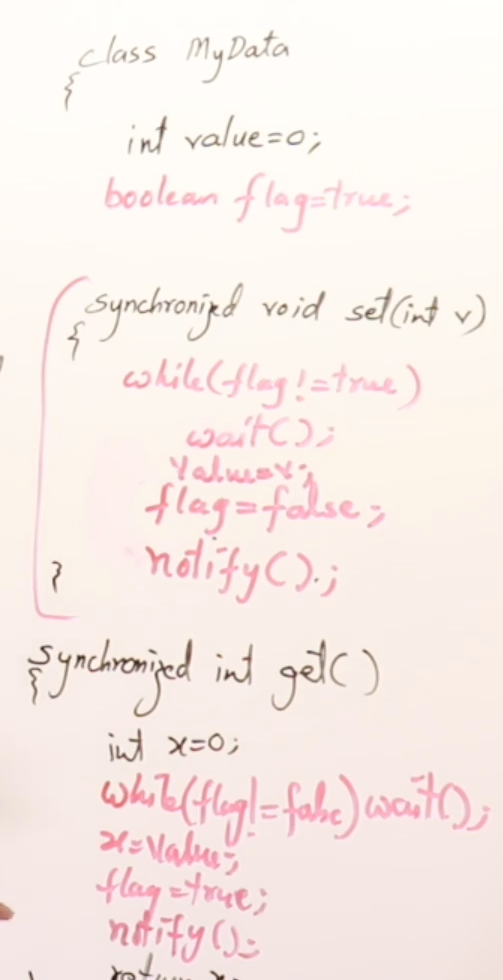 class MyData
{
int value=0;
boolean flag=true;
synchronized void set(int v)
{
while(flag!=true)
wait();
value=v;
flag=false;
notify();
}
synchronized int get()
{
int x=0;
while(flag!=false)wait();
x=value;
flag=true;
notify();
return x;